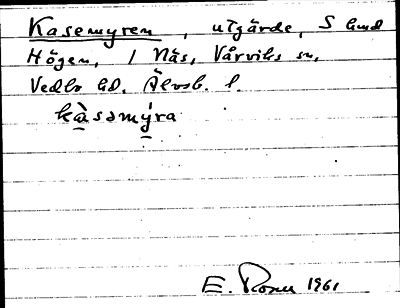 Kasemyren, utgärde, S lund
Högen, 1 Näs, Vårviks sn,
Vedbo hd. Älvsb. l.
kàsəmýra
E. Rosén 1961